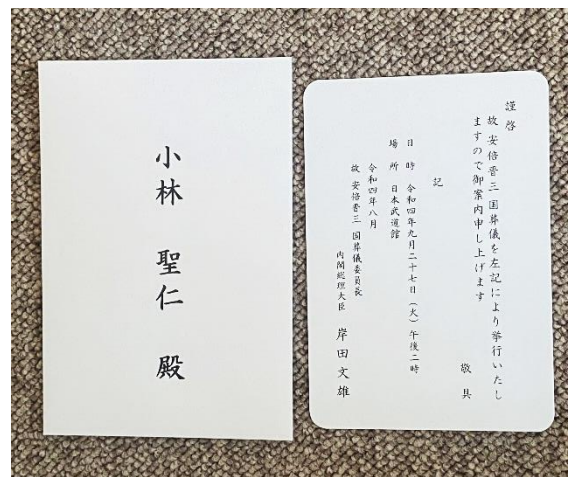 小林 聖仁 殿
謹啓
故 安倍晋三 国葬儀を左記により挙行いたし
ますので御案内申し上げます
敬具
記
日時 令和四年九月二十七日(火)午後二時
場所 日本武道館
令和四年八月
故 安倍晋三 国葬儀委員長
内閣総理大臣 岸田文雄